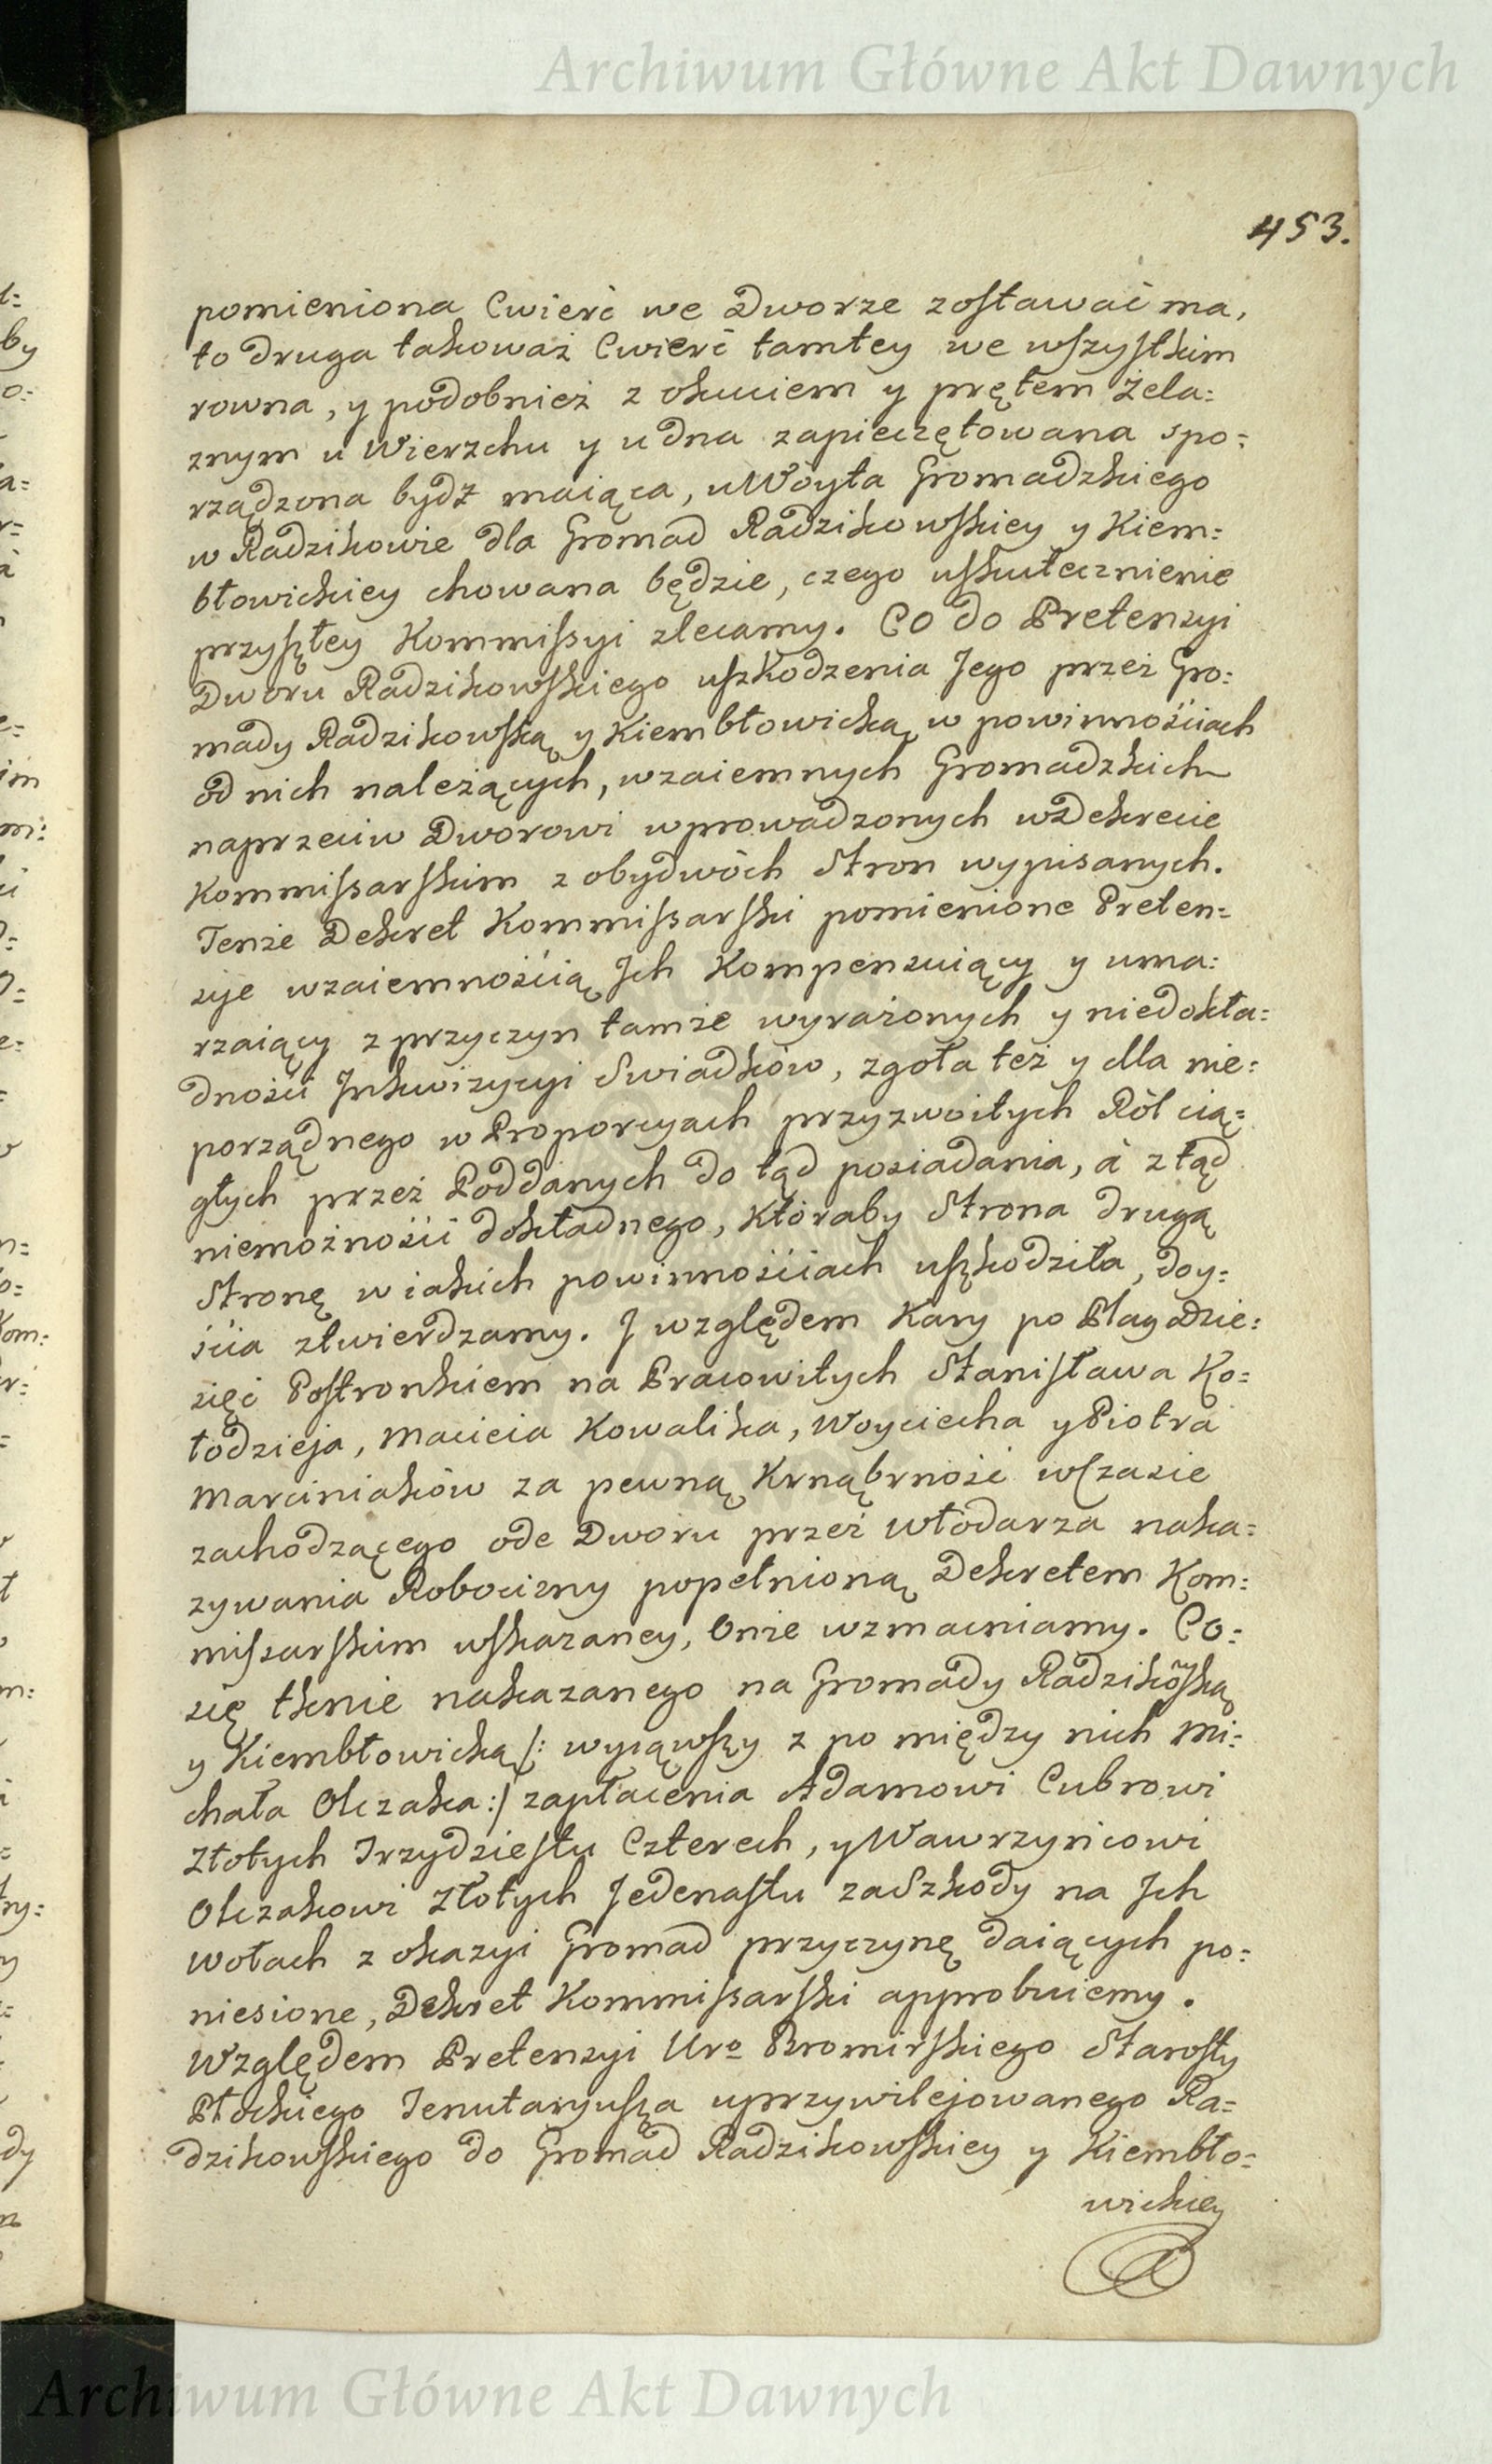 Archiwum Główne Akt Dawnych
453.
pomieniona Cwierć we Dworze zostawać ma,
to druga takoważ Cwierć tamtey we wszystkim
rowna, y podobnież z okuciem y prętem żela=
znym u Wierzchu y u dna zapieczętowana spo=
rządzona bydź maiąca, u Woyta Gromadzkiego
w Radzikowie dla Gromad Radzikowskiey y Kiem=
błowickiey chowana będzie, czego uskutecznienie
przyszłey Kommissyi zlecamy. Co do Pretensyi
Dworu Radzikowskiego uszkodzenia Jego przez Gro=
mady Radzikowską y Kiembłowicką w powinnościach
od nich należących, wzaiemnych Gromadzkich
naprzeciw Dworowi wprowadzonych w Dekrecie
Kommissarskim z obydwóch Stron wypisanych.
Tenże Dekret Kommissarski pomienione Preten=
sye wzaiemnością Jch Kompensuiący y uma=
rzaiący z przyczyn tamże wyrażonych y niedokła=
dności Jnkwizycyi Swiadków, zgoła też y dla nie=
porządnego w Proporcyach przyzwoitych Ról cią=
głych przez Poddanych do tąd posiadania, à ztąd
niemożności dokładnego, któraby Strona drugą
Stronę w iakich powinnościach uszkodziła, doy=
ścia ztwierdzamy. J względem Kary po Plag Dzie=
sięć Postronkiem na Pracowitych Stanisława Ko=
łodzieja, Macieia Kowalika, Woyciecha y Piotra
Marciniaków za pewną Krnąbrność w Czasie
zachodzącego ode Dworu przez Włodarza naka=
zywania Robocizny popełnioną Dekretem Kom=
missarskim wskazaney, Onże wzmacniamy. Co=
się tknie nakazanego na Gromady Radzikoską
y Kiembłowicką /: wyiąwszy z po między nich Mi=
chała Olczaka :/ zapłacenia Adamowi Cubrowi
Złotych Trzydziestu Czterech, y Wawrzyńcowi
Olczakowi Złotych Jedenastu za Szkody na Jch
Wołach z okazyi Gromad przyczynę daiących po=
niesione, Dekret Kommissarski approbuiemy.
Względem Pretensyi Uro Bromirskiego Starosty
Płockiego Tenutaryusza uprzywilejowanego Ra=
dzikowskiego do Gromad Radzikowskiey y Kiembło=
wickiey
Archiwum Główne Akt Dawnych